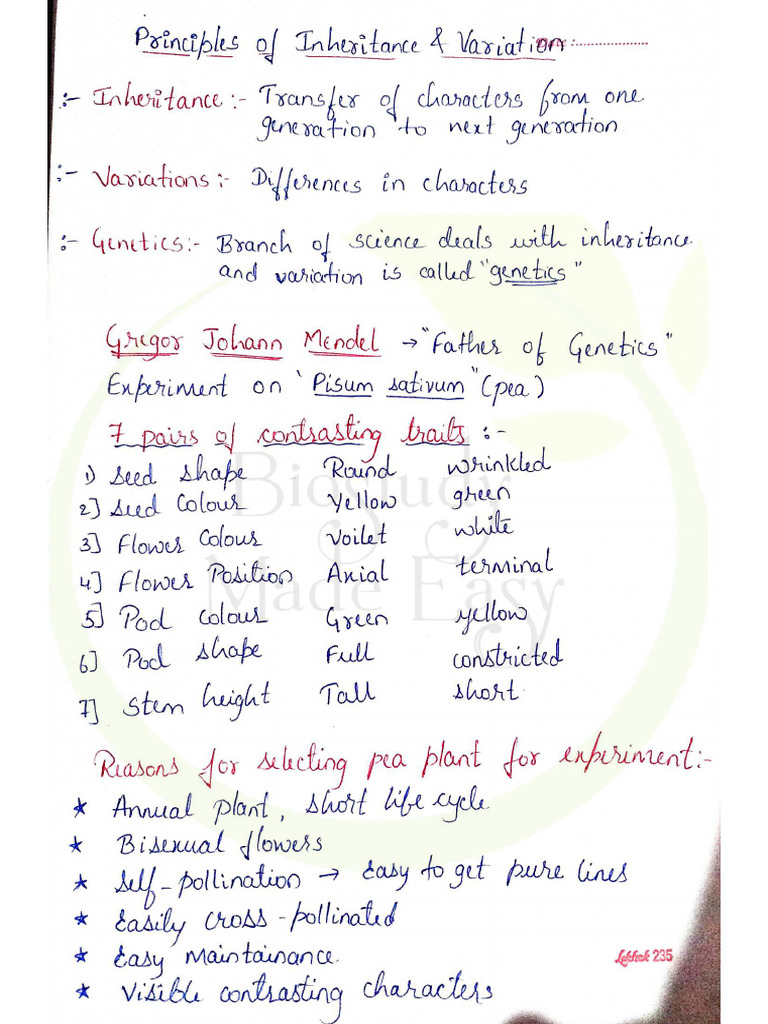 Principles of Inheritance & Variation
:- Inheritance :- Transfer of characters from one
generation to next generation
:- Variations :- Differences in characters
:- Genetics :- Branch of science deals with inheritance
and variation is called "genetics"
Gregor Johann Mendel → "Father of Genetics"
Experiment on ‘Pisum sativum" (pea)
7 pairs of contrasting traits :-
1) Seed shape Round wrinkled
2] Seed Colour Yellow green
3] Flower Colour Voilet white
4] Flower Position Axial terminal
5] Pod colour Green yellow
6] Pod shape Full constricted
7] Stem height Tall short
Biostudy
Made Easy
Reasons for selecting pea plant for experiment:-
* Annual plant, short life cycle
* Bisexual flowers
* Self-pollination → Easy to get pure lines
* Easily cross-pollinated
* Easy Maintainance.
Lekhak 235
* Visible contrasting characters